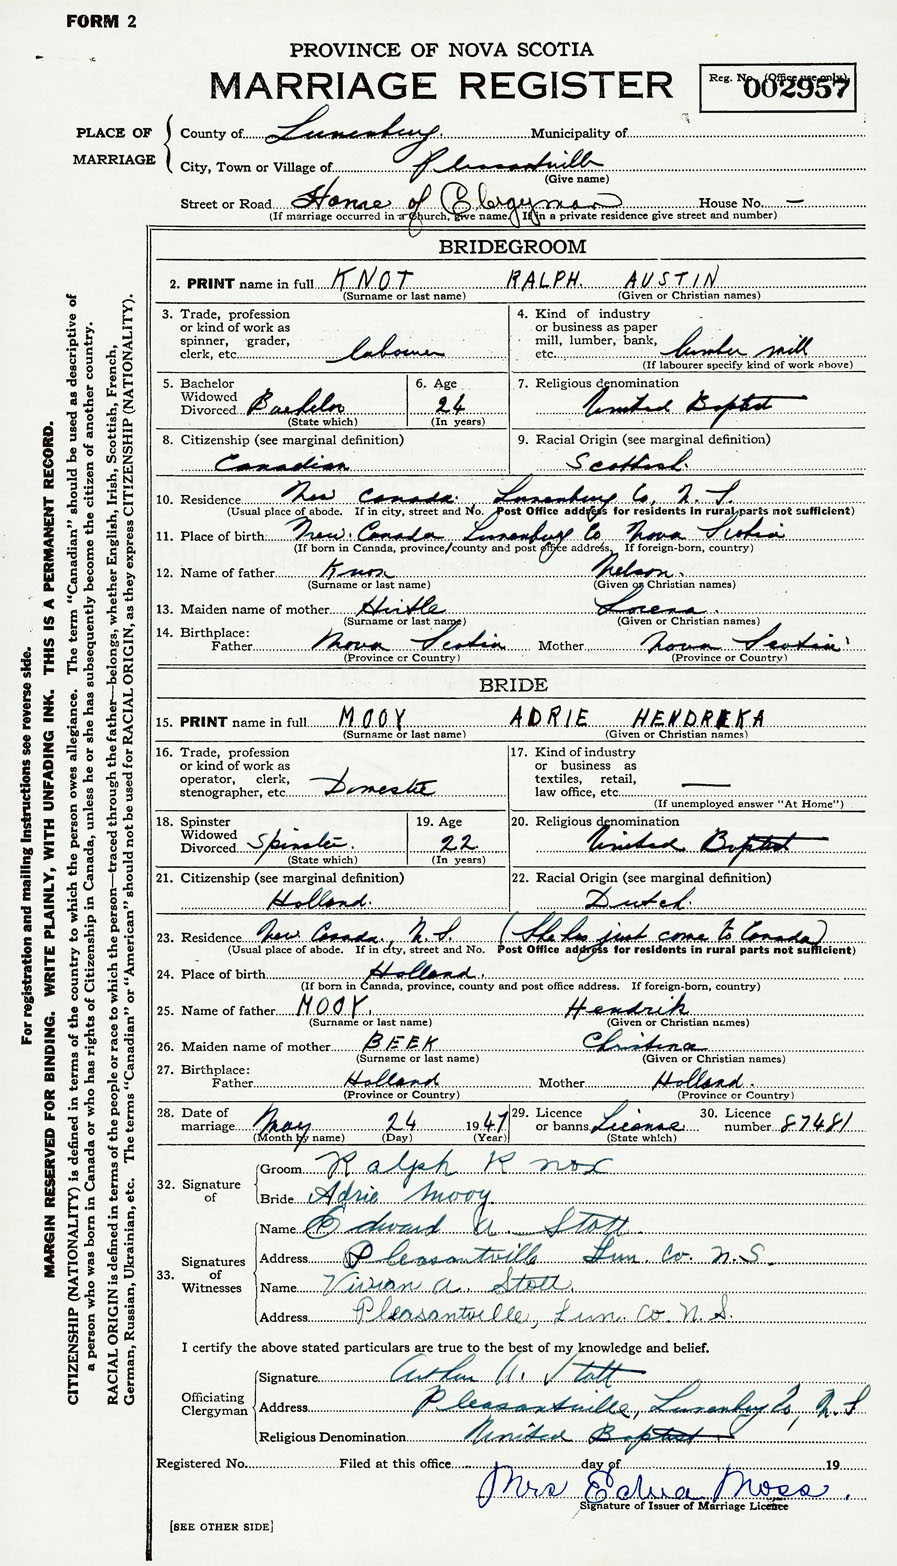 FORM 2
PROVINCE OF NOVA SCOTIA
MARRIAGE REGISTER
Reg. No. (Office use only)
002957
PLACE OF MARRIAGE
County of Lunenburg. Municipality of
City, Town or Village of Pleasantville
(Give name)
Street or Road Home of Clergyman House No. –
(If marriage occurred in a church, give name. If in a private residence give street and number)
BRIDEGROOM
2. PRINT name in full KNOT RALPH. AUSTIN
(Surname or last name) (Given or Christian names)
3. Trade, profession or kind of work as spinner, grader, clerk, etc. labourer
4. Kind of industry or business as paper mill, lumber, bank, etc. lumber mill
(If labourer specify kind of work above)
5. Bachelor Widowed Divorced Bachelor
(State which)
6. Age 24
(In years)
7. Religious denomination United Baptist
8. Citizenship (see marginal definition)
Canadian
9. Racial Origin (see marginal definition)
Scottish.
10. Residence New Canada. Lunenburg Co, N. S.
(Usual place of abode. If in city, street and No. Post Office address for residents in rural parts not sufficient)
11. Place of birth New Canada Lunenburg Co Nova Scotia
(If born in Canada, province/county and post office address. If foreign-born, country)
12. Name of father Knox Nelson.
(Surname or last name) (Given or Christian names)
13. Maiden name of mother Hirtle Lorena.
(Surname or last name) (Given or Christian names)
14. Birthplace:
Father Nova Scotia Mother Nova Scotia
(Province or Country) (Province or Country)
BRIDE
15. PRINT name in full MOOY ADRIE HENDRIKA
(Surname or last name) (Given or Christian names)
16. Trade, profession or kind of work as operator, clerk, stenographer, etc. Domestic
17. Kind of industry or business as textiles, retail, law office, etc. —
(If unemployed answer "At Home")
18. Spinster Widowed Divorced Spinster.
(State which)
19. Age 22
(In years)
20. Religious denomination United Baptist
21. Citizenship (see marginal definition)
Holland.
22. Racial Origin (see marginal definition)
Dutch.
23. Residence New Canada, N. S. (She has just come to Canada)
(Usual place of abode. If in city, street and No. Post Office address for residents in rural parts not sufficient)
24. Place of birth Holland.
(If born in Canada, province, county and post office address. If foreign-born, country)
25. Name of father MOOY. Hendrik
(Surname or last name) (Given or Christian names)
26. Maiden name of mother BEEK Christina
(Surname or last name) (Given or Christian names)
27. Birthplace:
Father Holland Mother Holland.
(Province or Country) (Province or Country)
28. Date of marriage May 24 1947
(Month by name) (Day) (Year)
29. Licence or banns License
(State which)
30. Licence number 87481
32. Signature of
Groom Ralph Knox
Bride Adrie Mooy
33. Signatures of Witnesses
Name Edward A. Stott.
Address Pleasantville Lun. Co. N.S.
Name Vivian A. Stott.
Address Pleasantville, Lun. Co. N. S.
I certify the above stated particulars are true to the best of my knowledge and belief.
Officiating Clergyman
Signature Arthur A. Stott
Address Pleasantville, Lunenburg Co, N. S
Religious Denomination United Baptist
Registered No. Filed at this office day of 19
Mrs Edna Moss.
Signature of Issuer of Marriage Licence
[SEE OTHER SIDE]
For registration and mailing instructions see reverse side.
MARGIN RESERVED FOR BINDING. WRITE PLAINLY, WITH UNFADING INK. THIS IS A PERMANENT RECORD.
CITIZENSHIP (NATIONALITY) is defined in terms of the country to which the person owes allegiance. The term "Canadian" should be used as descriptive of
a person who was born in Canada or who has rights of Citizenship in Canada, unless he or she has subsequently become the citizen of another country.
RACIAL ORIGIN is defined in terms of the people or race to which the person—traced through the father—belongs, whether English, Irish, Scottish, French,
German, Russian, Ukrainian, etc. The terms "Canadian" or "American" should not be used for RACIAL ORIGIN, as they express CITIZENSHIP (NATIONALITY).